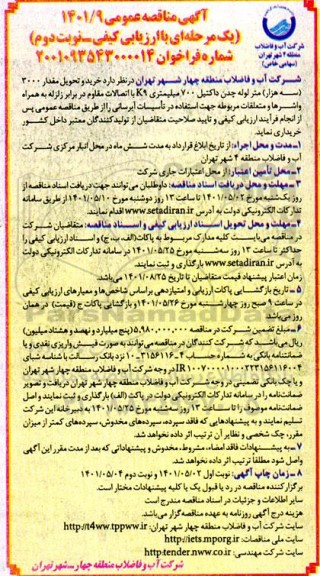 آگهی مناقصه عمومی ۱۴۰۱/۹
(یک مرحله‌ای با ارزیابی کیفی ـ نوبت دوم)
شماره فراخوان ۲۰۰۱۰۹۳۵۴۳۰۰۰۰۱۴
شرکت آب و فاضلاب
منطقه ۴ شهر تهران
(سهامی خاص)
شرکت آب و فاضلاب منطقه چهار شهر تهران در نظر دارد خرید و تحویل مقدار ۳۰۰۰
(سه هزار) متر لوله چدن داکتیل ۷۰۰ میلیمتری K9 با اتصالات مقاوم در برابر زلزله به همراه
واشرها و متعلقات مربوطه جهت استفاده در تأسیسات آبرسانی را از طریق مناقصه عمومی پس
از انجام فرآیند ارزیابی کیفی و تایید صلاحیت متقاضیان از تولیدکنندگان معتبر داخل کشور
خریداری نماید.
۱ـ مدت و محل اجراء: از تاریخ ابلاغ قرارداد به مدت شش ماه در محل انبار مرکزی شرکت
آب و فاضلاب منطقه ۴ شهر تهران
۲ـ محل تأمین اعتبار: از محل اعتبارات جاری شرکت
۳ـ مهلت و محل دریافت اسناد مناقصه: داوطلبان می‌توانند جهت دریافت اسناد مناقصه از
روز یکشنبه مورخ ۱۴۰۱/۰۵/۰۲ تا ساعت ۱۳ روز دوشنبه مورخ ۱۴۰۱/۰۵/۱۰ از طریق سامانه
تدارکات الکترونیکی دولت به آدرس www.setadiran.ir اقدام نمایند.
۴ـ مهلت و محل تحویل اسناد ارزیابی کیفی و اسناد مناقصه: متقاضیان شرکت
در مناقصه می‌بایست کلیه مدارک مربوط به پاکات (الف، ب، ج) و اسناد ارزیابی کیفی را
حداکثر تا ساعت ۱۳ روز سه‌شنبه مورخ ۱۴۰۱/۰۵/۲۵ در سامانه تدارکات الکترونیکی دولت
به آدرس www.setadiran.ir بارگذاری و ثبت نمایند.
زمان اعتبار پیشنهاد قیمت متقاضیان تا تاریخ ۱۴۰۱/۰۸/۲۵ می‌باشد.
۵ـ تاریخ بازگشایی پاکات ارزیابی و امتیازدهی براساس شاخص‌ها و معیارهای ارزیابی کیفی
در ساعت ۹ صبح روز چهارشنبه مورخ ۱۴۰۱/۰۵/۲۶ و بازگشایی پاکات ج (قیمت) در همان
روز می‌باشد.
۶ـ مبلغ تضمین شرکت در مناقصه ۵,۹۸۰,۰۰۰,۰۰۰ (پنج میلیارد و نهصد و هشتاد میلیون)
ریال می‌باشد که شرکت کنندگان در مناقصه می‌توانند به صورت فیش واریزی نقدی و یا
ضمانتنامه بانکی به شماره حساب
نزد بانک رسالت با شناسه شبای
در وجه شرکت آب و فاضلاب منطقه چهار شهر تهران
و یا چک بانکی تضمینی در وجه شرکت آب و فاضلاب منطقه چهار شهر تهران دریافت و تصویر
ضمانتنامه را در سامانه تدارکات الکترونیکی دولت در پاکت (الف) بارگذاری و ثبت نمایند و اصل
ضمانتنامه موصوف را تا ساعت ۱۳ روز سه‌شنبه مورخ ۱۴۰۱/۰۵/۲۵ به دبیرخانه این شرکت
تسلیم نمایند و به پیشنهادهایی که فاقد سپرده، سپرده‌های مخدوش، سپرده‌های کمتر از میزان
مقرر، چک شخصی و نظایر آن ترتیب اثر داده نخواهد شد.
۷ـ به پیشنهادات فاقد امضاء، مشروط، مخدوش و پیشنهاداتی که بعد از مدت مقرر این آگهی
واصل شود مطلقاً ترتیب اثر داده نخواهد شد.
۸ـ زمان چاپ آگهی: نوبت اول ۱۴۰۱/۰۵/۰۲ و نوبت دوم ۱۴۰۱/۰۵/۰۴
برگزارکننده مناقصه در رد یا قبول یک یا کلیه پیشنهادات مختار است.
سایر اطلاعات و جزئیات در اسناد مناقصه مندرج است
هزینه درج آگهی روزنامه به عهده مناقصه‌گزار می‌باشد.
سایت شرکت آب و فاضلاب منطقه چهار شهر تهران: http://t4ww.tppww.ir
سایت ملی مناقصات: http://iets.mporg.ir
سایت شرکت مهندسی: http:tender.nww.co.ir
شرکت آب و فاضلاب منطقه چهار ـ شهر تهران